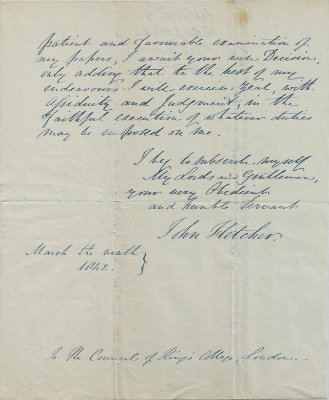 patient and favourable examination of
my papers, I await your wise Decision,
only adding that to the best of my
endeavours I will exercise Zeal, with
Assiduity and Judgment, in the
faithful execution of whatever duties
may be imposed on me.
I beg to subscribe myself
My Lords and Gentlemen,
your very Obedient
and humble Servant
John Fletcher.
March the ninth
To The Council of King's College, London.